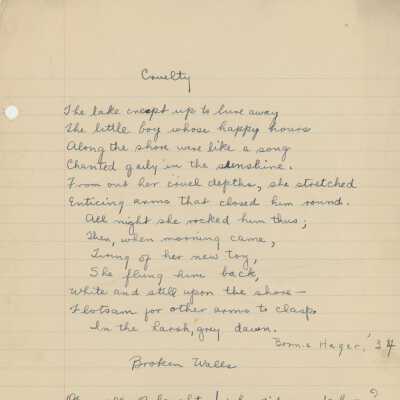 Cruelty
The lake crept up to lure away
The little boy whose happy hours
Along the shore were like a song
Chanted gaily in the sunshine.
From out her cruel depths, she stretched
Enticing arms that closed him round.
All night she rocked him thus;
Then, when morning came,
Tiring of her new toy,
She flung him back,
White and still upon the shore—
Flotsam for other arms to clasp
In the harsh, grey dawn.
Hager, '34
Broken Walls